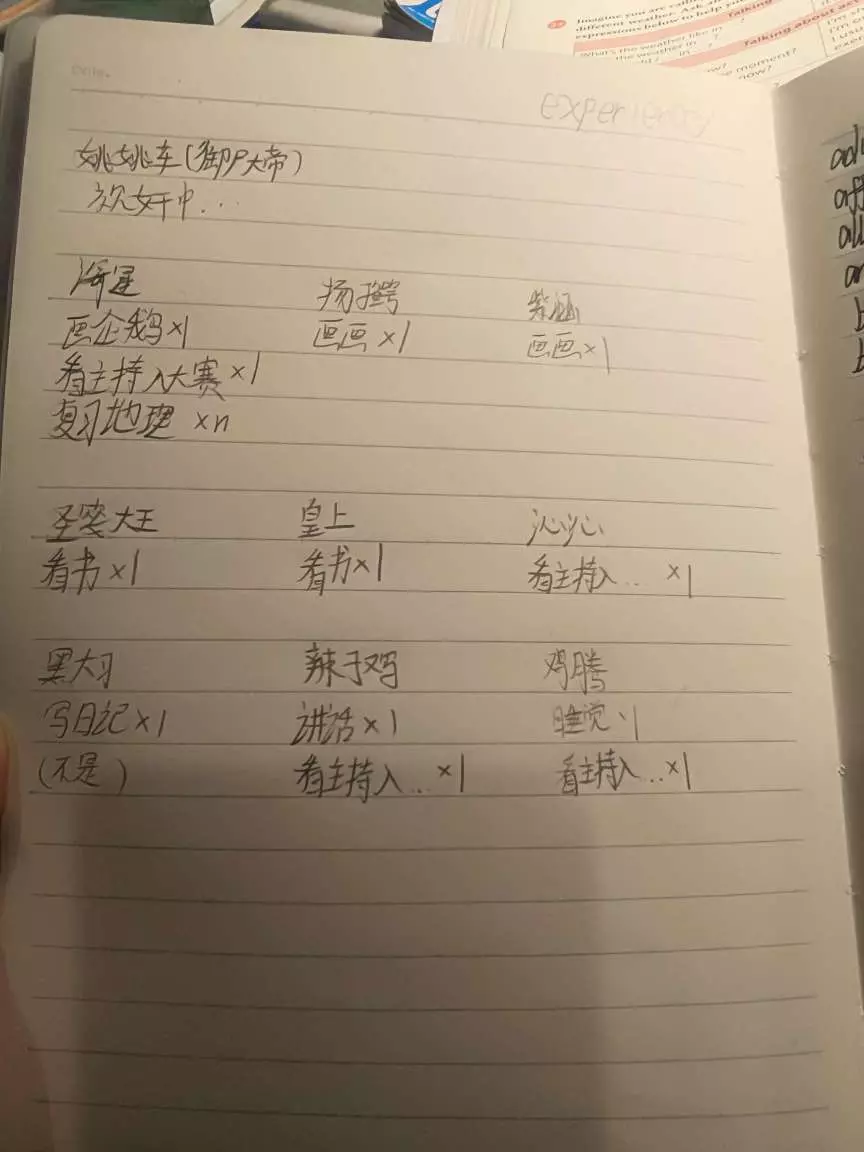 Imagine you are
different weather. Ask
expressions below to help you
Talking
What's the weather like in
the weather in ...?
Talking about
moment?
now?
Date.
experien
姚姚车(御P大帝)
次奸中...
海星 扬 紫涵
画企鹅×1 画画×1 画画×1
看主持人大赛×1
复习地理×n
圣婴大王 皇上 沁沁
看书×1 看书×1 看主持人... ×1
黑大习 辣子鸡 鸡腾
写日记×1 讲话×1 睡觉×1
(不是) 看主持人...×1 看主持人...×1